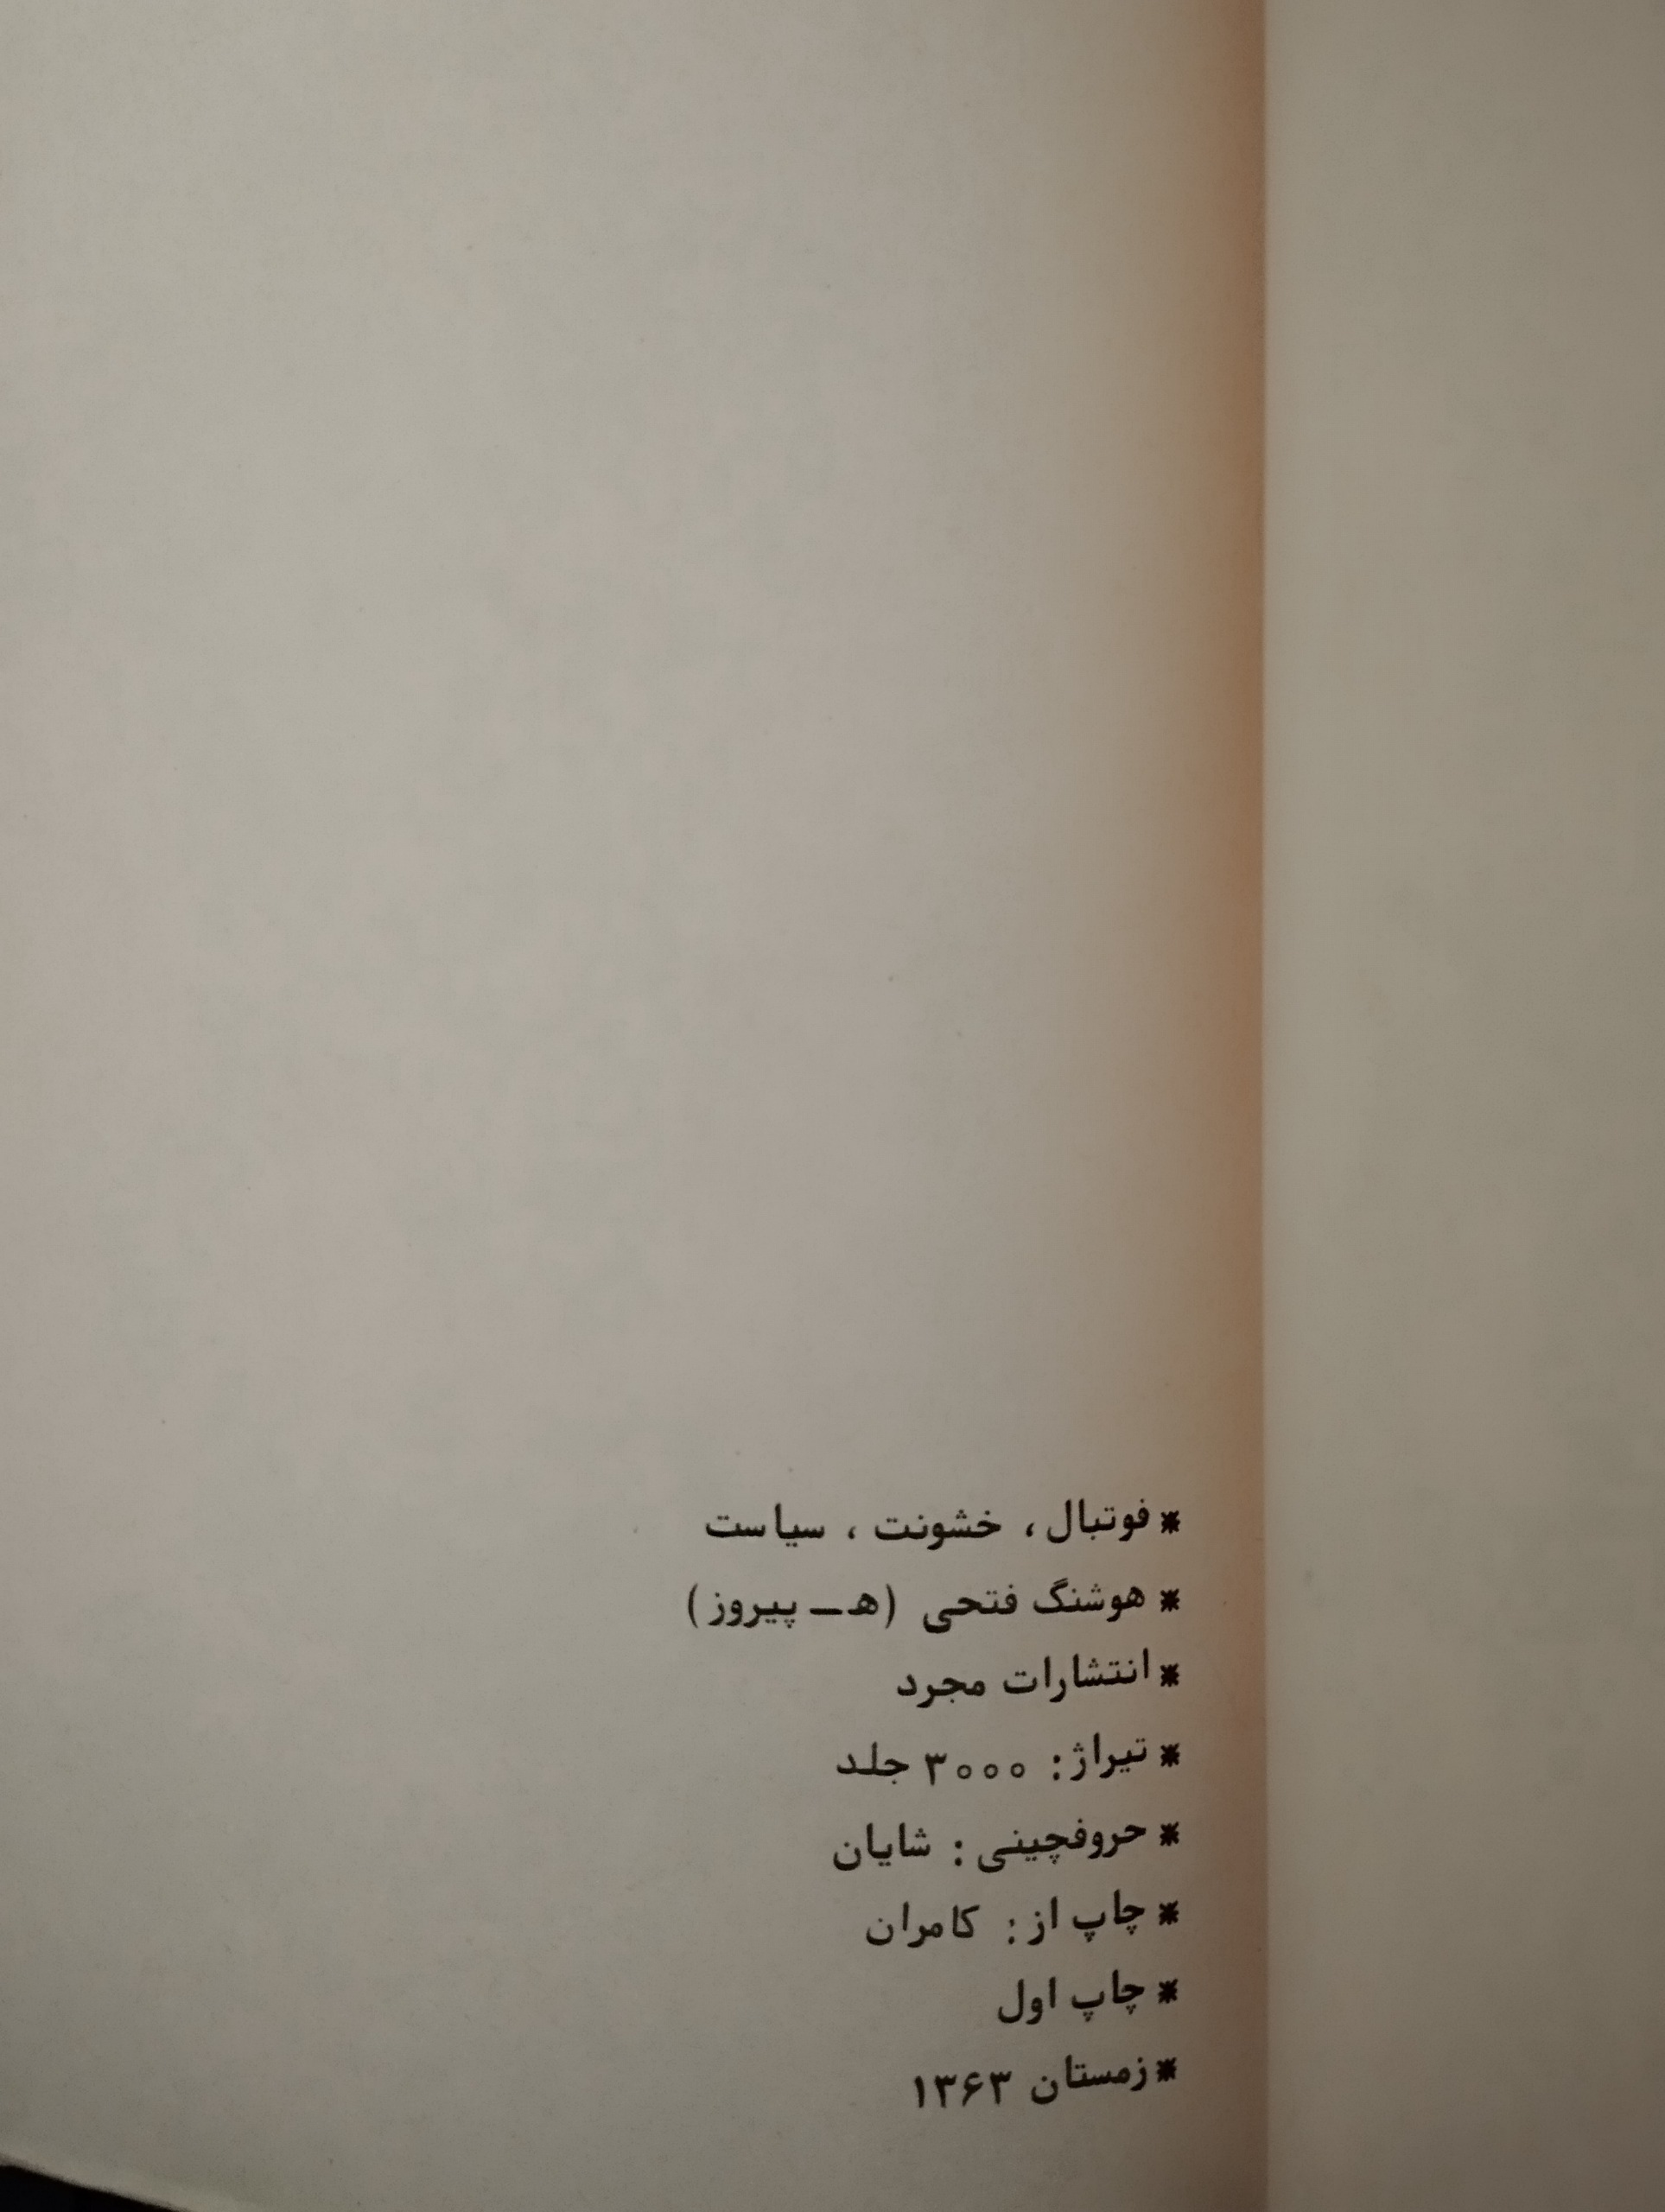 * فوتبال، خشونت، سیاست
* هوشنگ فتحی (هـ – پیروز)
* انتشارات مجرد
* تیراژ: ۳۰۰۰ جلد
* حروفچینی: شایان
* چاپ از: کامران
* چاپ اول
* زمستان ۱۳۶۳